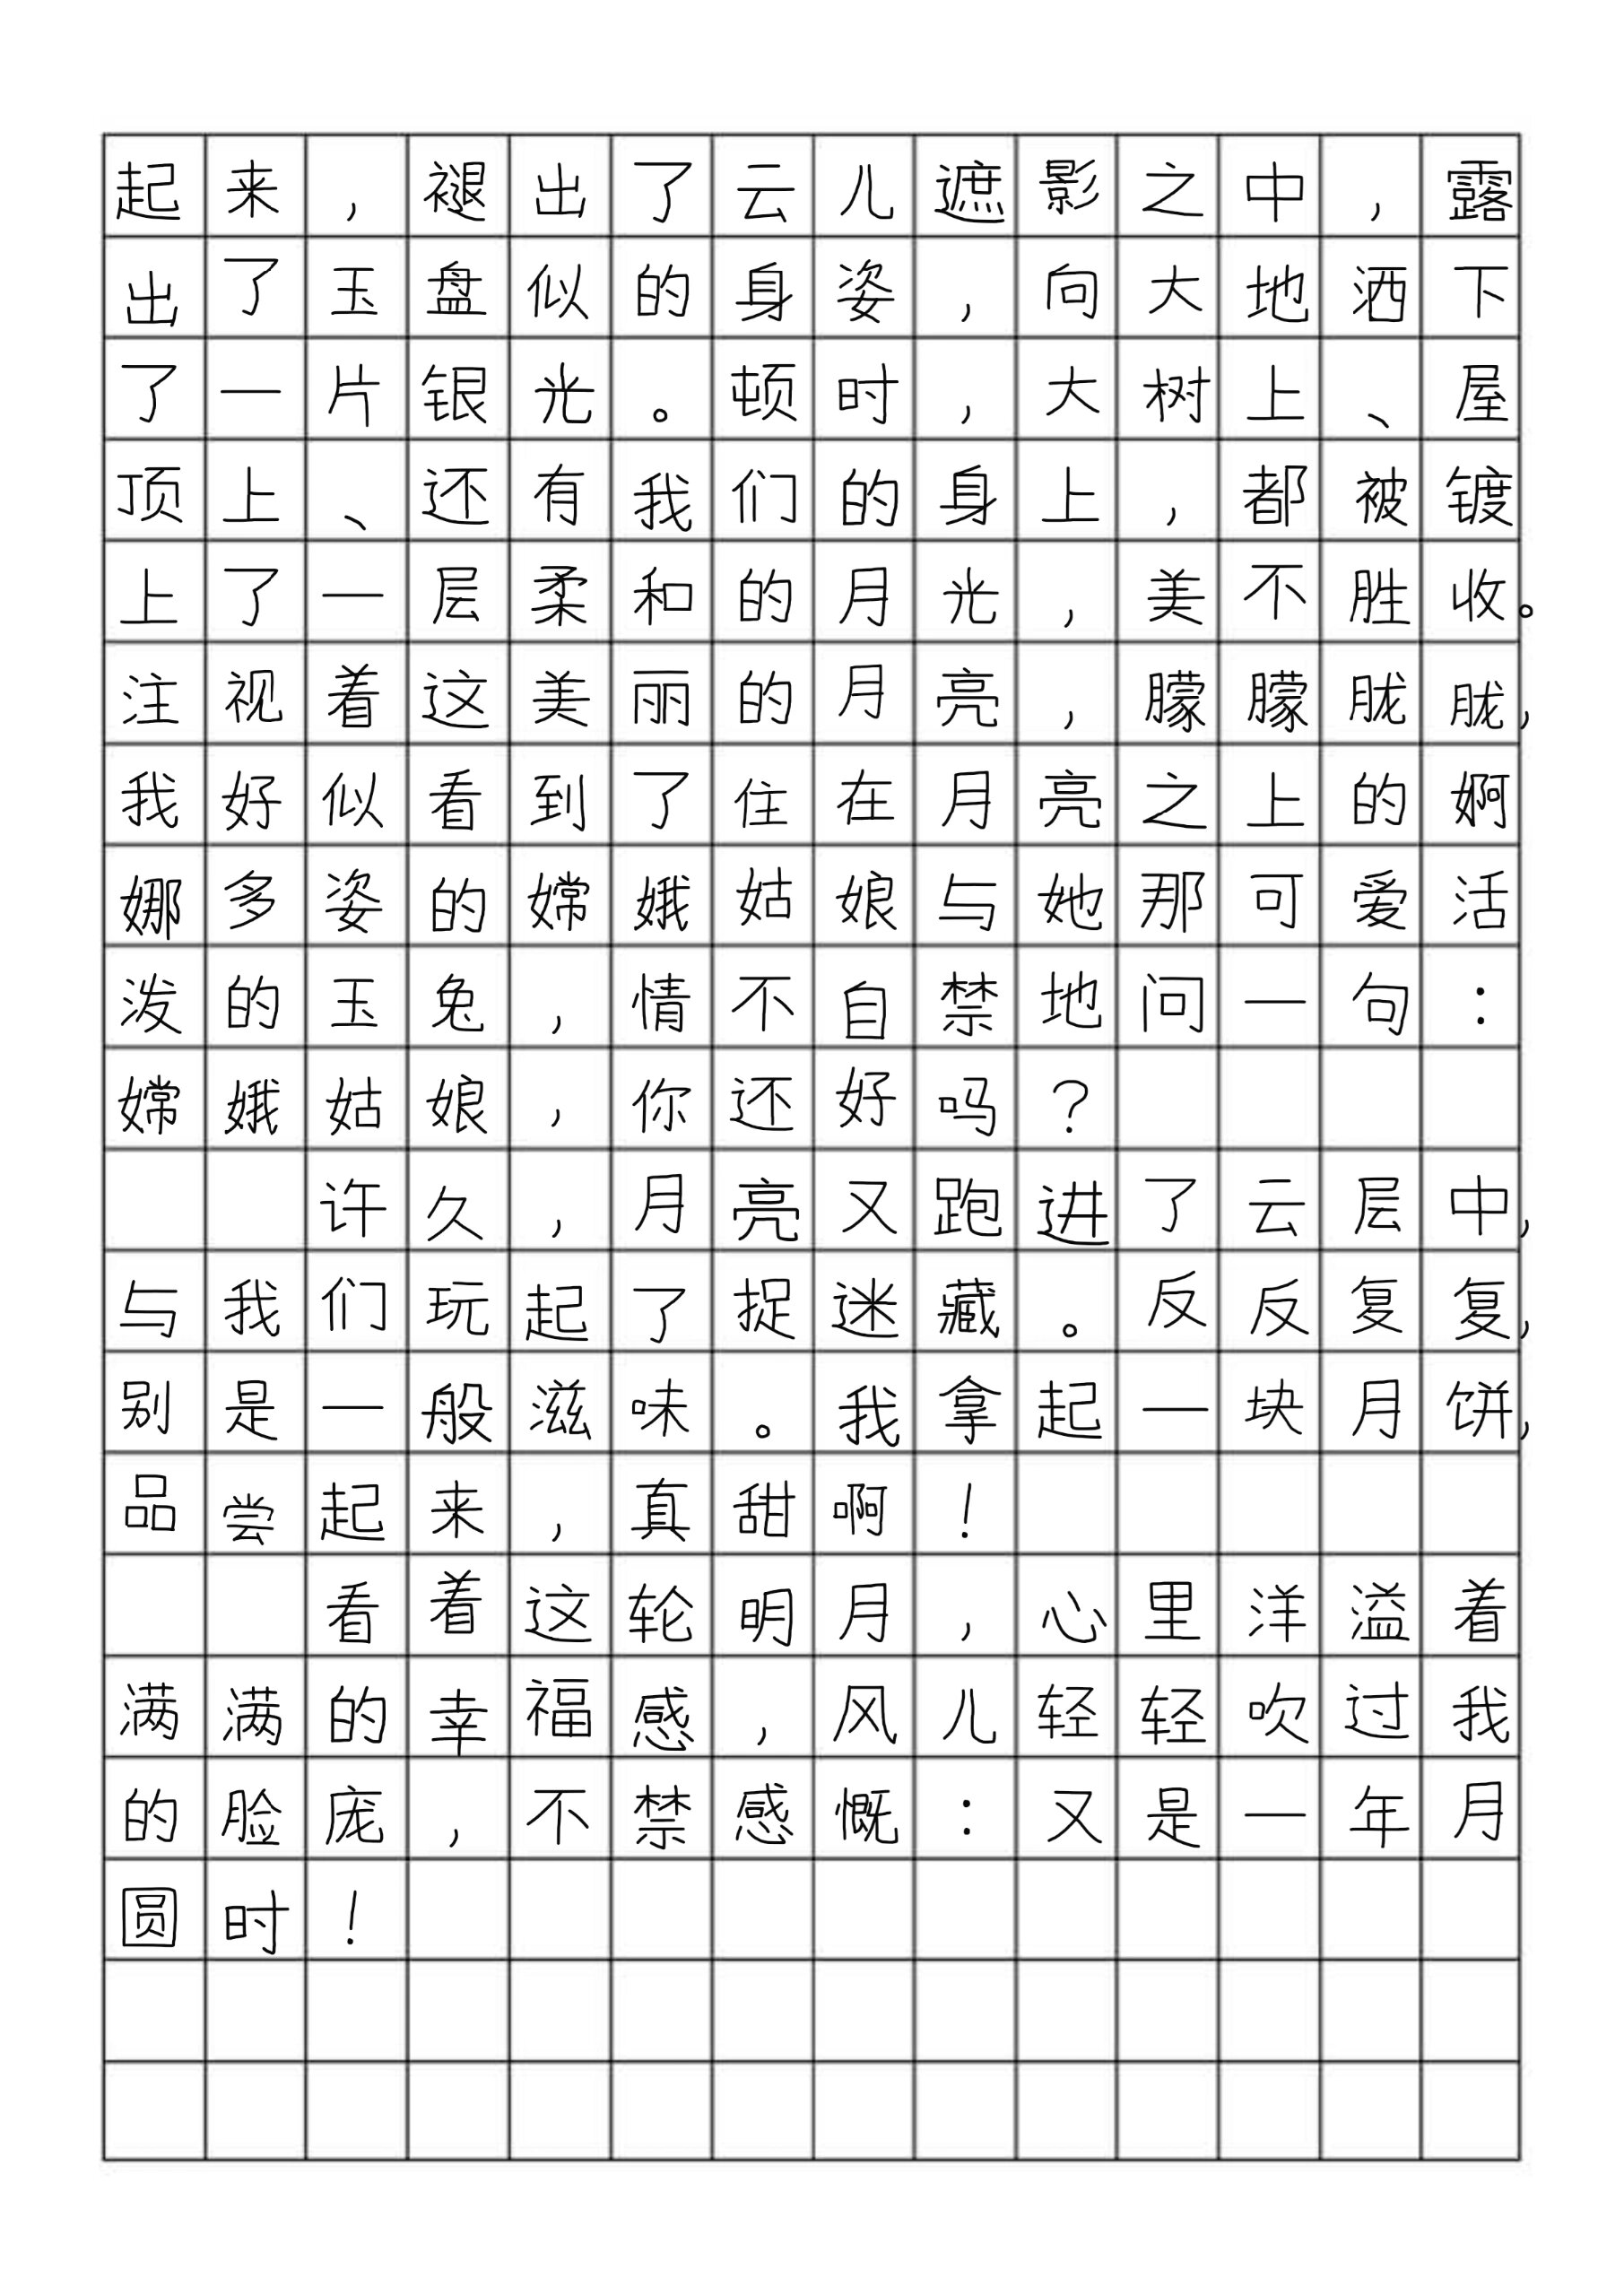 起来，褪出了云儿遮影之中，露
出了玉盘似的身姿，向大地洒下
了一片银光。顿时，大树上、屋
顶上、还有我们的身上，都被镀
上了一层柔和的月光，美不胜收。
注视着这美丽的月亮，朦朦胧胧，
我好似看到了住在月亮之上的婀
娜多姿的嫦娥姑娘与她那可爱活
泼的玉兔，情不自禁地问一句：
嫦娥姑娘，你还好吗？
许久，月亮又跑进了云层中，
与我们玩起了捉迷藏。反反复复，
别是一般滋味。我拿起一块月饼，
品尝起来，真甜啊！
看着这轮明月，心里洋溢着
满满的幸福感，风儿轻轻吹过我
的脸庞，不禁感慨：又是一年月
圆时！